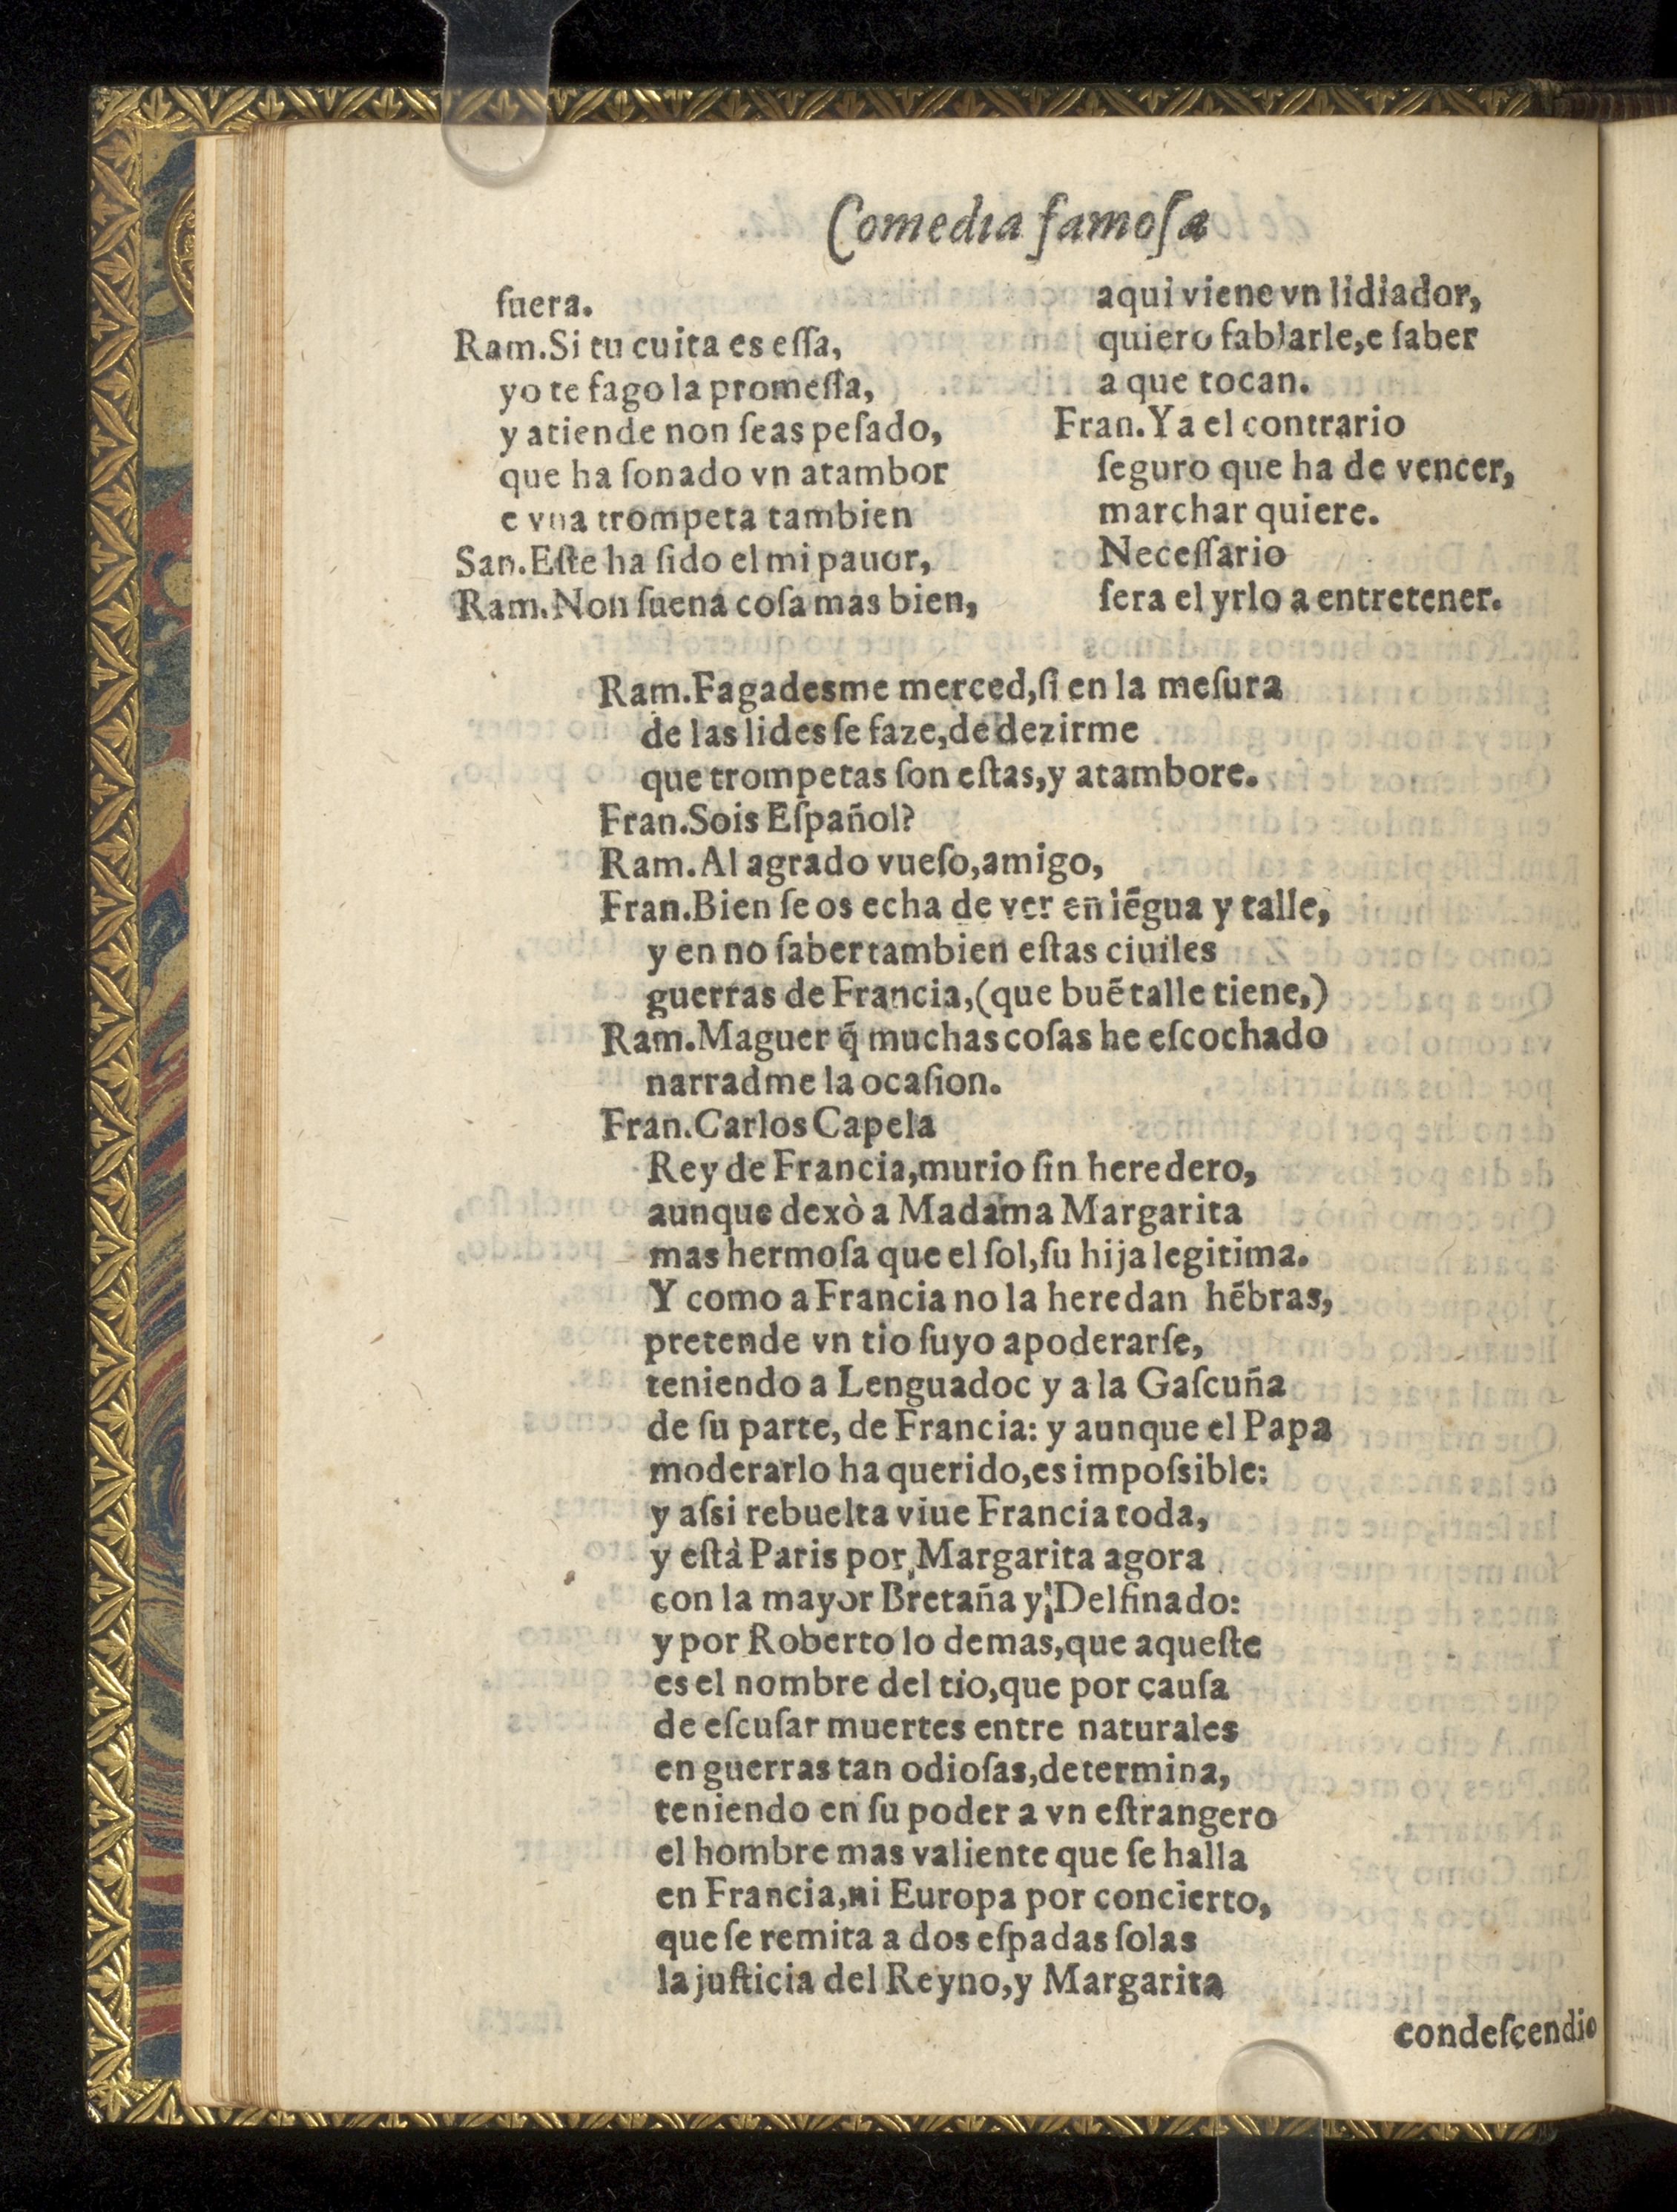 Comedia famoſa
fuera.
Ram.Si tu cuita es eſſa,
yo te fago la promeſſa,
y atiende non ſeas peſado,
que ha ſonado vn atambor
e vna trompeta tambien
San.Eſte ha ſido el mi pauor,
Ram.Non ſuena coſa mas bien,
aqui viene vn lidiador,
quiero fablarle,e ſaber
a que tocan.
Fran.Ya el contrario
ſeguro que ha de vencer,
marchar quiere.
Neceſſario
ſera el yrlo a entretener.
Ram.Fagadesme merced,ſi en la meſura
de las lides ſe faze,de dezirme
que trompetas ſon eſtas,y atambore.
Fran.Sois Eſpañol?
Ram.Al agrado vueſo,amigo,
Fran.Bien ſe os echa de ver en lẽgua y talle,
y en no ſaber tambien eſtas ciuiles
guerras de Francia,(que buẽ talle tiene,)
Ram.Maguer q̃ muchas coſas he eſcochado
narradme la ocaſion.
Fran.Carlos Capela
Rey de Francia,murio ſin heredero,
aunque dexò a Madama Margarita
mas hermoſa que el ſol,ſu hija legitima.
Y como a Francia no la heredan hẽbras,
pretende vn tio ſuyo apoderarſe,
teniendo a Lenguadoc y a la Gaſcuña
de ſu parte, de Francia: y aunque el Papa
moderarlo ha querido,es impoſsible:
y aſsi rebuelta viue Francia toda,
y eſtà Paris por Margarita agora
con la mayor Bretaña y Delfinado:
y por Roberto lo demas,que aqueſte
es el nombre del tio,que por cauſa
de eſcuſar muertes entre naturales
en guerras tan odioſas,determina,
teniendo en ſu poder a vn eſtrangero
el hombre mas valiente que ſe halla
en Francia,ni Europa por concierto,
que ſe remita a dos eſpadas ſolas
la juſticia del Reyno,y Margarita
condeſcendio